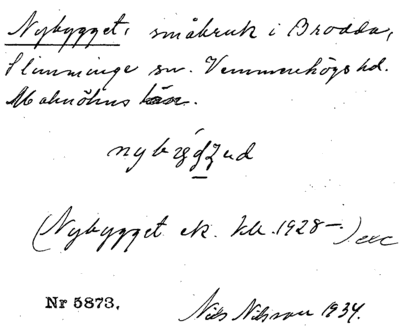 Nybygget, småbruk i Brodda,
Slimminge sn. Vemmenhögs hd.
Malmöhus län.
(Nybygget ek. kb. 1928–.) exc
Nr 5873.
Nils Nilsson 1934.